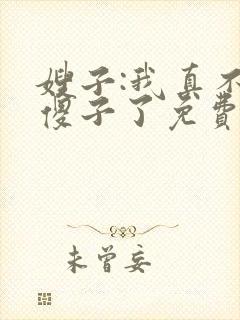 嫂子:我真不
傻子了免费
未曾妄